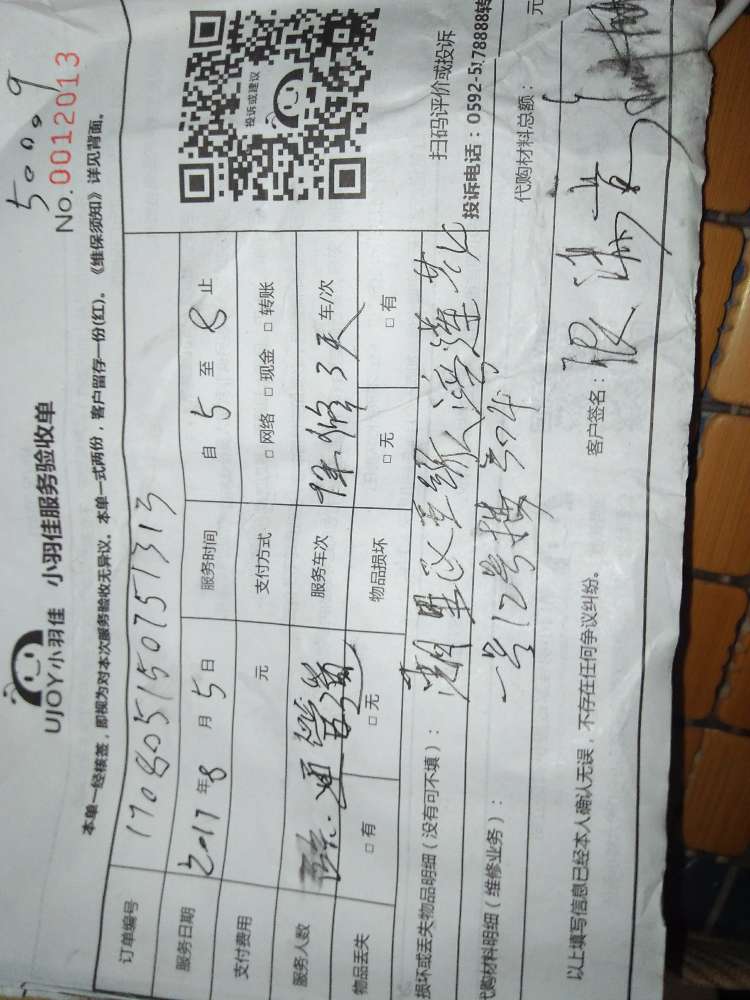 50009
No.0012013
UJOY小羽佳 小羽佳服务验收单
本单一经核签，即视为对本次服务验收无异议。本单一式两份，客户留存一份(红)。《维保须知》详见背面。
订单编号 170805150751313
服务日期 2017年8月5日 服务时间 自5至8止
支付费用 元 支付方式 □网络 □现金 □转账
服务人数 通管道 服务车次 保修3天 车/次
物品丢失 □有 □无 物品损坏 □无 □有
投诉或建议
扫码评价或投诉
投诉电话：0592-5178888转
损坏或丢失物品明细（没有可不填）： 湖里区
代购材料明细（维修业务）： 12号楼504 代购材料总额： 元
以上填写信息已经本人确认无误，不存在任何争议纠纷。 客户签名：